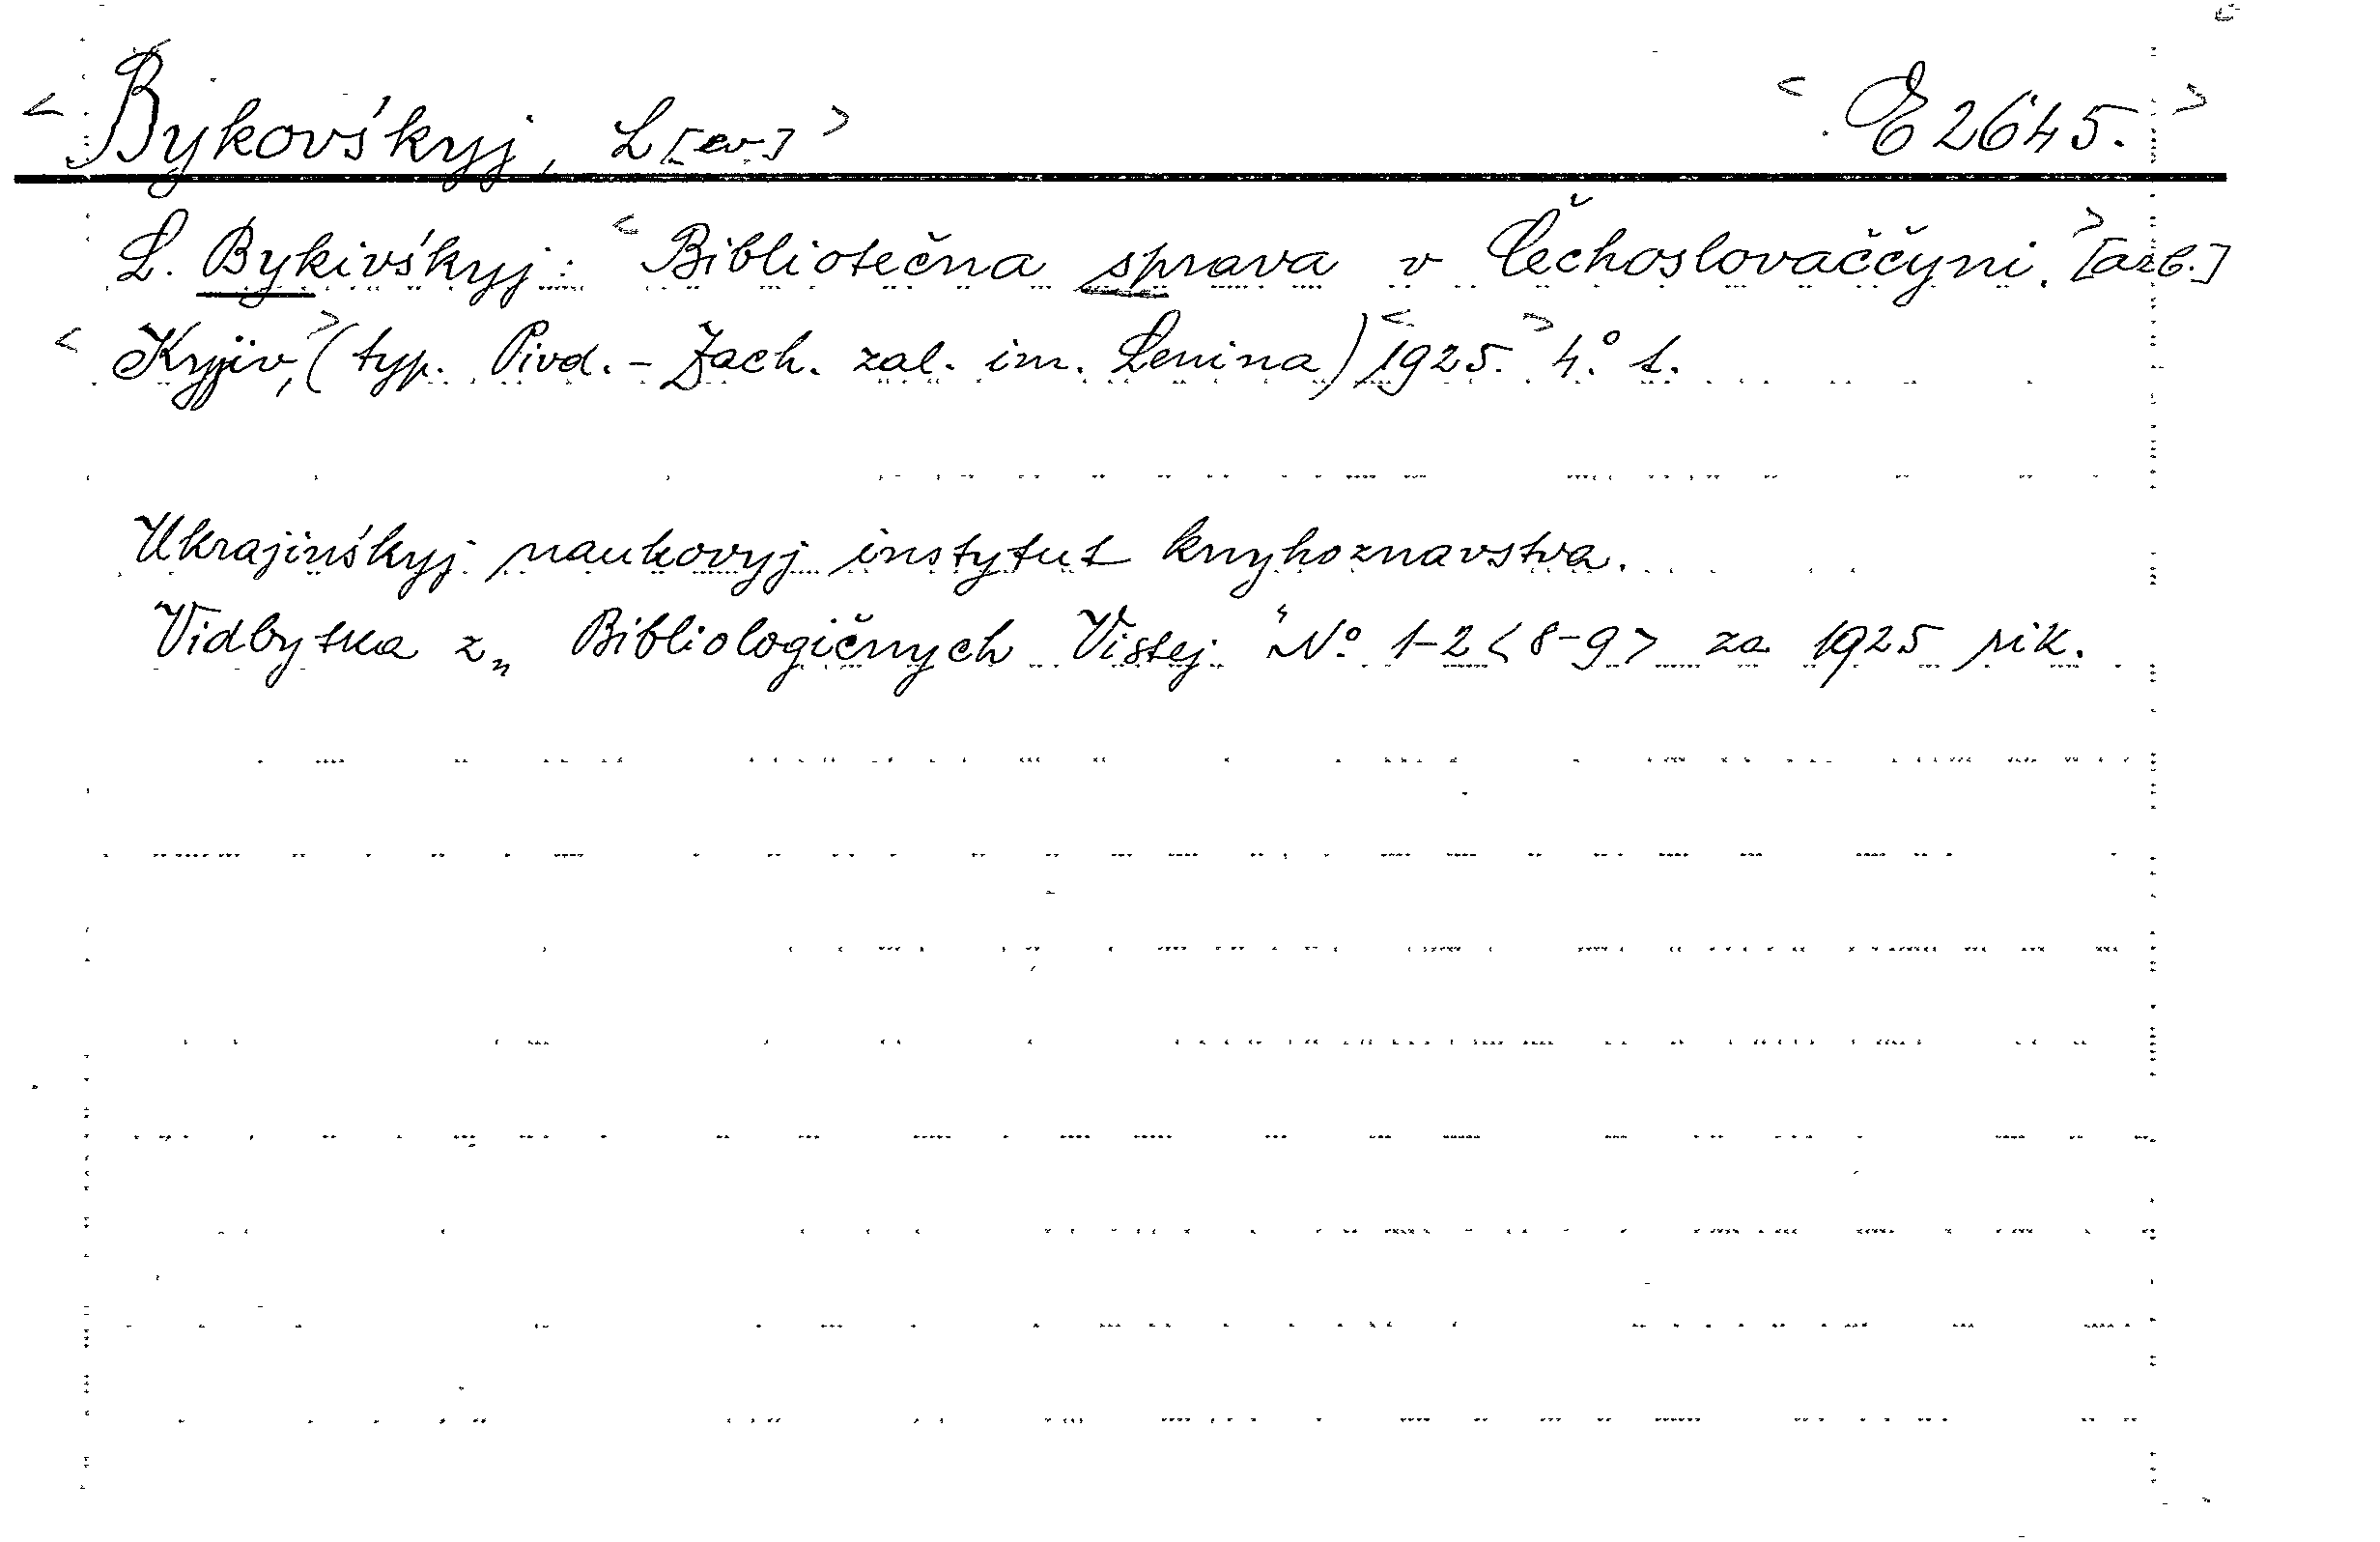 < Bykovśkyj, L[ev.] > < E 2645. >
L. Bykivśkyj: < Bibliotečna sprava v Čechoslovaččyni. > [azb.]
< Kyjiv, > (typ. Pivd.-Zach. zal. im. Lenina) < 1925. > 4.° t.
Ukrajinśkyj naukovyj instytut knyhoznavstva.
Vidbytka z „Bibliologičnych Vistej" N° 1-2 < 8-9 > za 1925 rik.